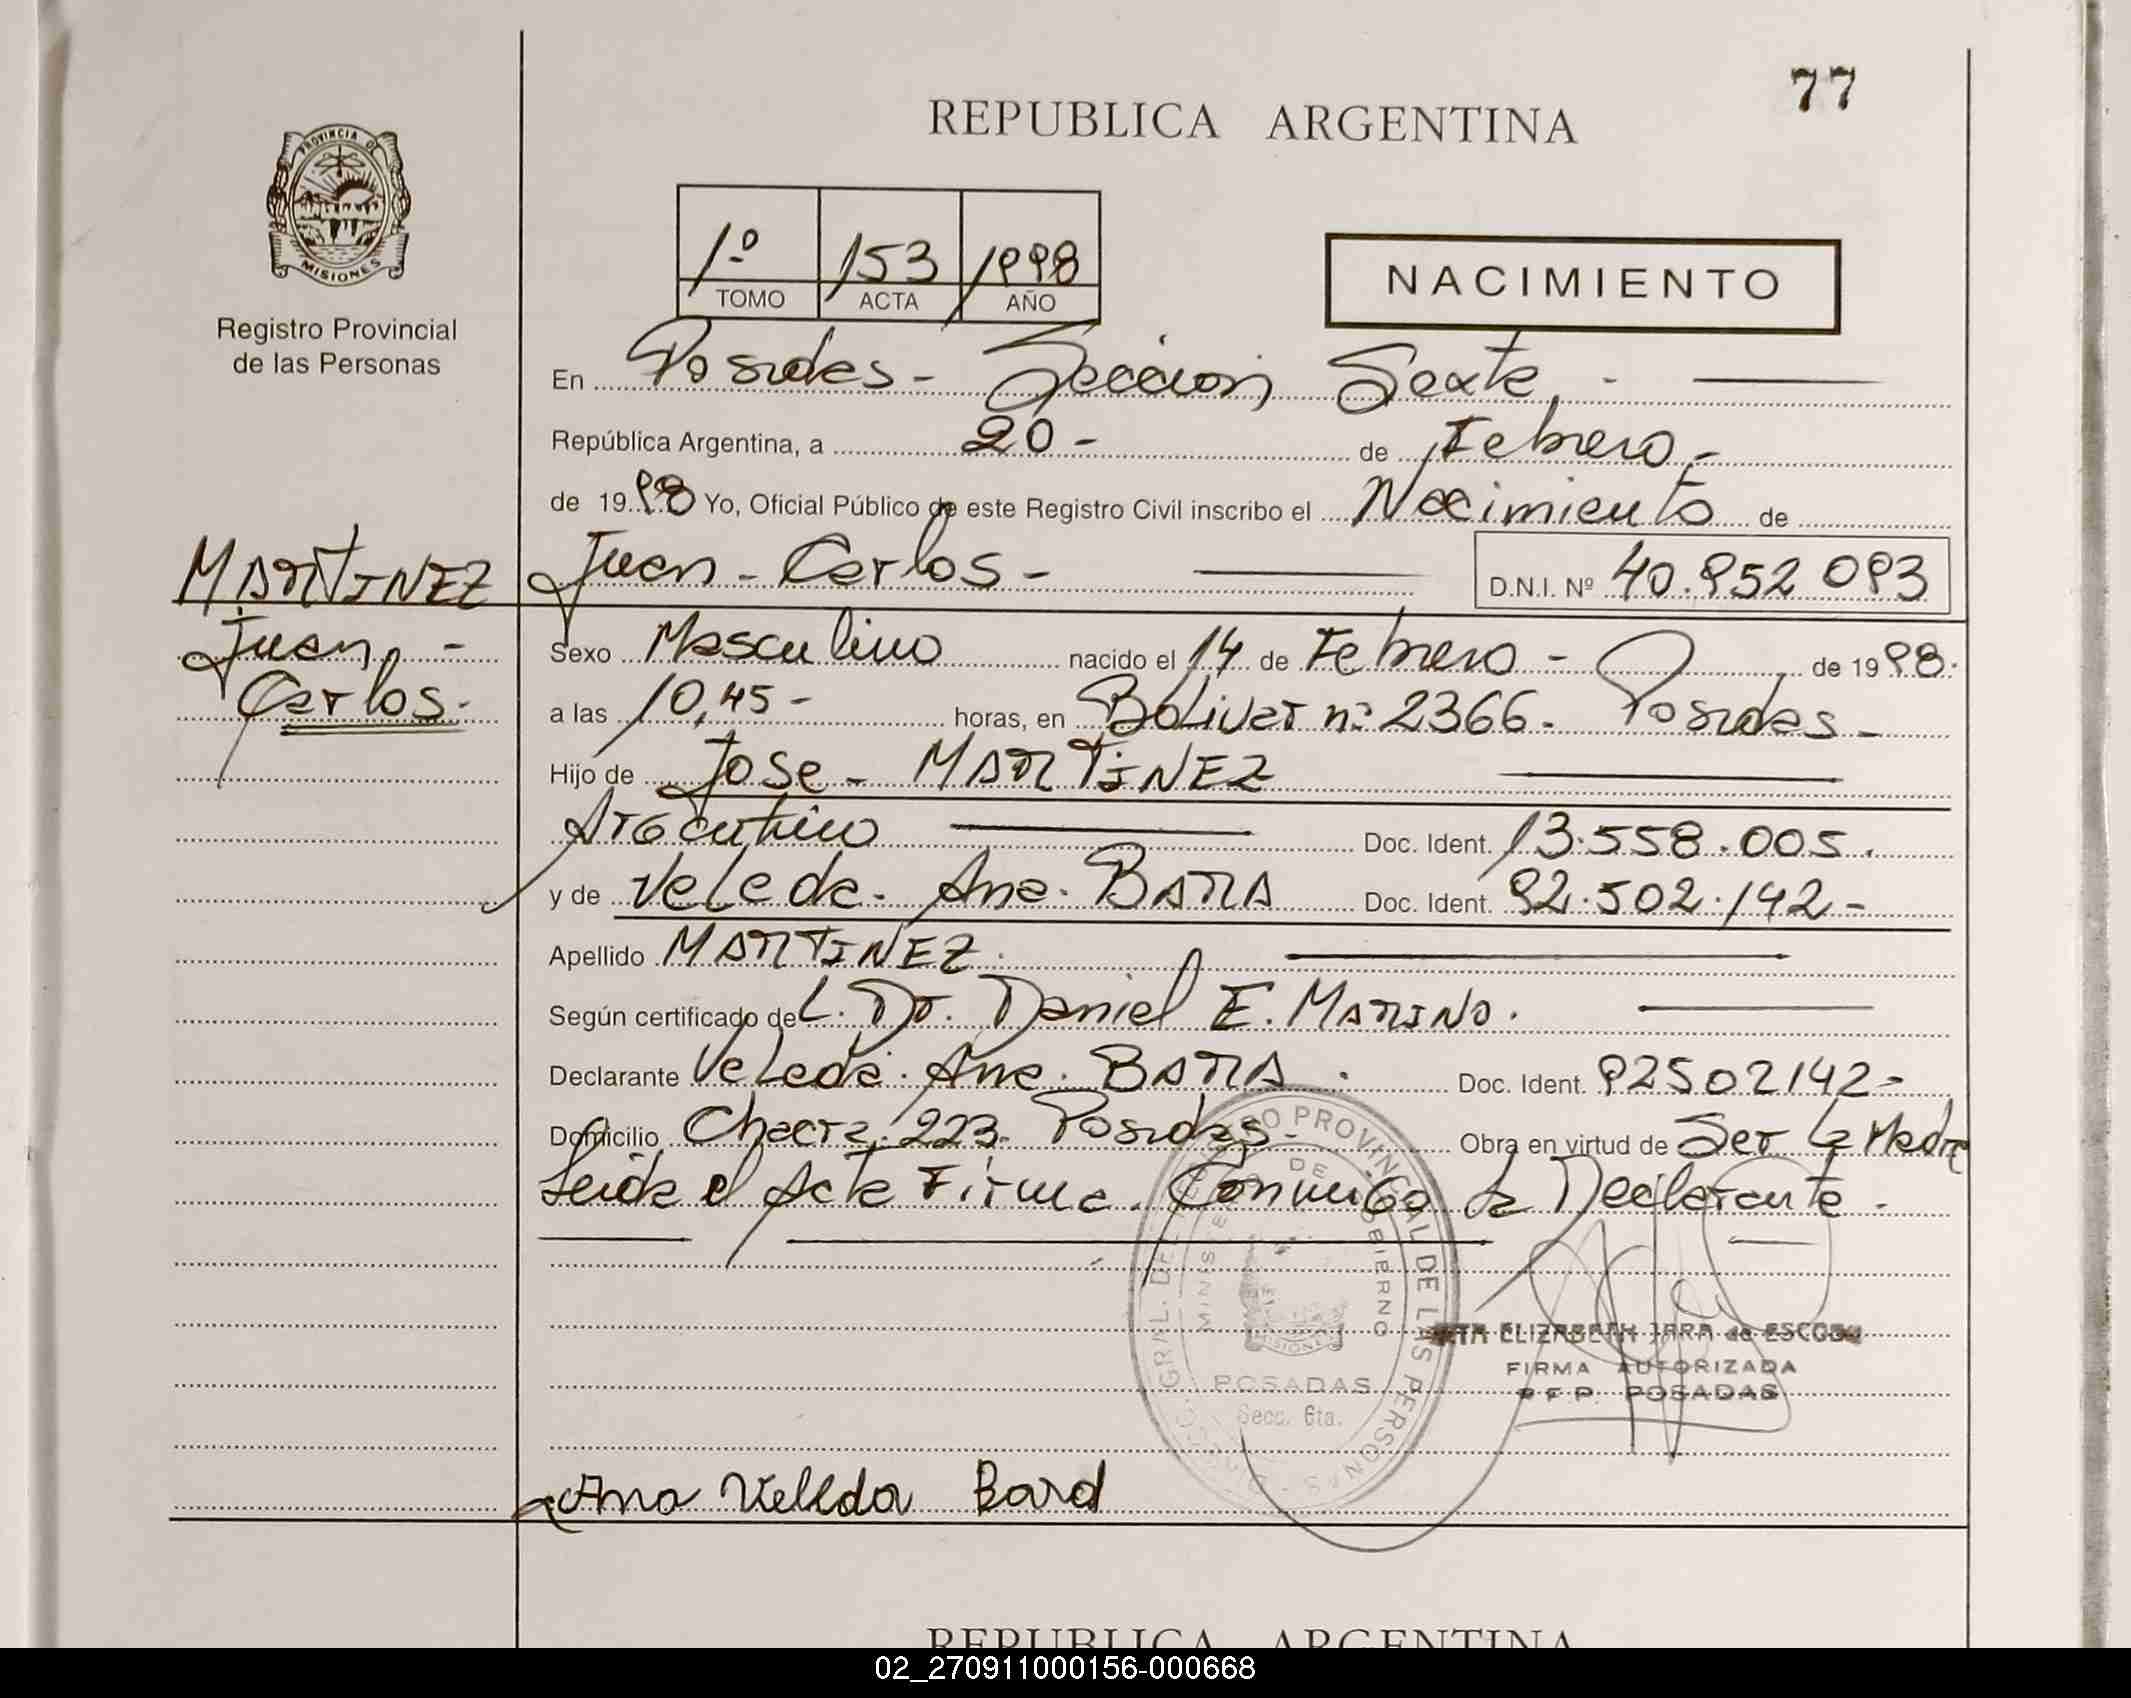 77
REPUBLICA ARGENTINA
PROVINCIA DE
MISIONES
Registro Provincial
de las Personas
1º 153 1998
TOMO ACTA AÑO
NACIMIENTO
En Posadas - Sección Sexta. -
República Argentina, a 20 - de Febrero -
de 1998 Yo, Oficial Público de este Registro Civil inscribo el Nacimiento de
MARTINEZ
Juan -
Carlos.
Juan - Carlos - D.N.I. Nº 40.952 093
Sexo Masculino nacido el 14 de Febrero - de 1998.
a las 10,45 - horas, en Bolivar nº 2366. Posadas -
Hijo de Jose - MARTINEZ
Argentino Doc. Ident. 13.558.005.
y de Veleda. Ana. BARA Doc. Ident. 92.502.142 -
Apellido MARTINEZ.
Según certificado de L. Dr. Daniel E. MARINO.
Declarante Veleda. Ana. BARA. Doc. Ident. 92502142 -
Domicilio Chacra 223. Posadas - Obra en virtud de Ser la Madre
Leida el Acta Firma. Conmigo la Declarante -
PROVINCIAL DE LAS PERSONAS
MINISTERIO DE GOBIERNO
MISIONES
POSADAS
Secc. 6ta.
ELIZABETH JARA de
FIRMA AUTORIZADA
POSADAS
Ana Vellda Bard
REPUBLICA ARGENTINA
02_270911000156-000668